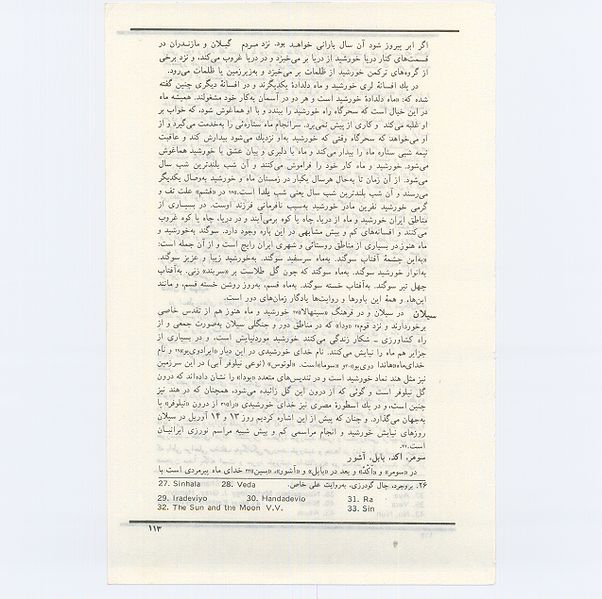 اگر ابر پیروز شود آن سال بارانی خواهد بود. نزد مردم گیلان و مازندران در
قسمت‌های کنار دریا خورشید از دریا بر می‌خیزد و در دریا غروب می‌کند، و نزد برخی
از گروه‌های ترکمن خورشید از ظلمات بر می‌خیزد و به‌زیرزمین یا ظلمات می‌رود.
در یك افسانهٔ لری خورشید و ماه دلدادهٔ یکدیگرند و در افسانهٔ دیگری چنین گفته
شده که: «ماه دلدادهٔ خورشید است و هر دو در آسمان به‌کار خود مشغولند. همیشه ماه
در این خیال است که سحرگاه راه خورشید را ببندد و با او هماغوش شود، که خواب بر
او غلبه می‌کند و کاری از پیش نمی‌برد. سرانجام ماه ستاره‌ئی را به‌خدمت می‌گیرد و از
او می‌خواهد که سحرگاه وقتی که خورشید به‌او نزدیك می‌شود بیدارش کند و عاقبت
نیمه شبی ستاره ماه را بیدار می‌کند و ماه با دلبری و بیان عشق با خورشید هماغوش
می‌شود. خورشید و ماه کار خود را فراموش می‌کنند و آن شب بلندترین شب سال
می‌شود. از آن زمان تا به‌حال هرسال یکبار در زمستان ماه و خورشید به‌وصال یکدیگر
می‌رسند و آن شب بلندترین شب سال یعنی شب یلدا است. در «قشم» علت تف و
گرمی خورشید نفرین مادر خورشید به‌سبب نافرمانی فرزند اوست. در بسیاری از
مناطق ایران خورشید و ماه از دریا، چاه یا کوه برمی‌آیند و در دریا، چاه یا کوه غروب
می‌کنند و افسانه‌های کم و بیش مشابهی در این باره وجود دارد. سوگند به‌خورشید و
ماه هنوز در بسیاری از مناطق روستائی و شهری ایران رایج است و از آن جمله است:
«به‌این چشمهٔ آفتاب سوگند. به‌ماه سرسفید سوگند. به‌خورشید زیبا و عزیز سوگند.
به‌انوار خورشید سوگند. به‌ماه سوگند که چون گل طلاست بر «سربند» زنی. به‌آفتاب
چهل تیر سوگند. به‌آفتاب خسته سوگند. به‌ماه قسم، به‌روز روشن خسته قسم، و مانند
این‌ها، و همهٔ این باورها و روایت‌ها یادگار زمان‌های دور است.
سیلان در سیلان و در فرهنگ «سینهالا»۲۷ خورشید و ماه هنوز هم از تقدس خاصی
برخوردارند و نزد قوم «ودا» که در مناطق دور و جنگلی سیلان به‌صورت جمعی و از
راه کشاورزی ـ شکار زندگی می‌کنند خورشید موردنیایش است، و در بسیاری از
جزایر هم ماه را نیایش می‌کنند. نام خدای خورشیدی در این دیار «ایرادوی‌یو»۲۹ و نام
خدای‌ماه«هاندا دوی‌یو»۳۰ و «سوما»است. «لوتوس» (نوعی نیلوفر آبی) در این سرزمین
نیز مثل هند نماد خورشید است و در تندیس‌های متعدد «بودا» را نشان داده‌اند که درون
گل نیلوفر است و گوئی که از درون این گل زائیده می‌شود، همچنان که در هند نیز
چنین است، و در یك اسطورهٔ مصری نیز خدای خورشیدی «را»۳۱ از درون «نیلوفر» پا
به‌جهان می‌گذارد. و چنان که پیش از این اشاره کردیم روز ۱۳ و ۱۴ آوریل در سیلان
روزهای نیایش خورشید و انجام مراسمی کم و بیش شبیه مراسم نوروزی ایرانیان
است.
سومر، اکد، بابل، آشور
در «سومر» و «اَکَد» و بعد در «بابل» و «آشور»، «سین»۳۳ خدای ماه پیرمردی است با
۲۶. بروجرد، جال گودرزی. به‌روایت علی خاص.
27. Sinhala 28. Veda
29. Iradeviyo 30. Handadevio 31. Ra
32. The Sun and the Moon V.V. 33. Sin
۱۱۳